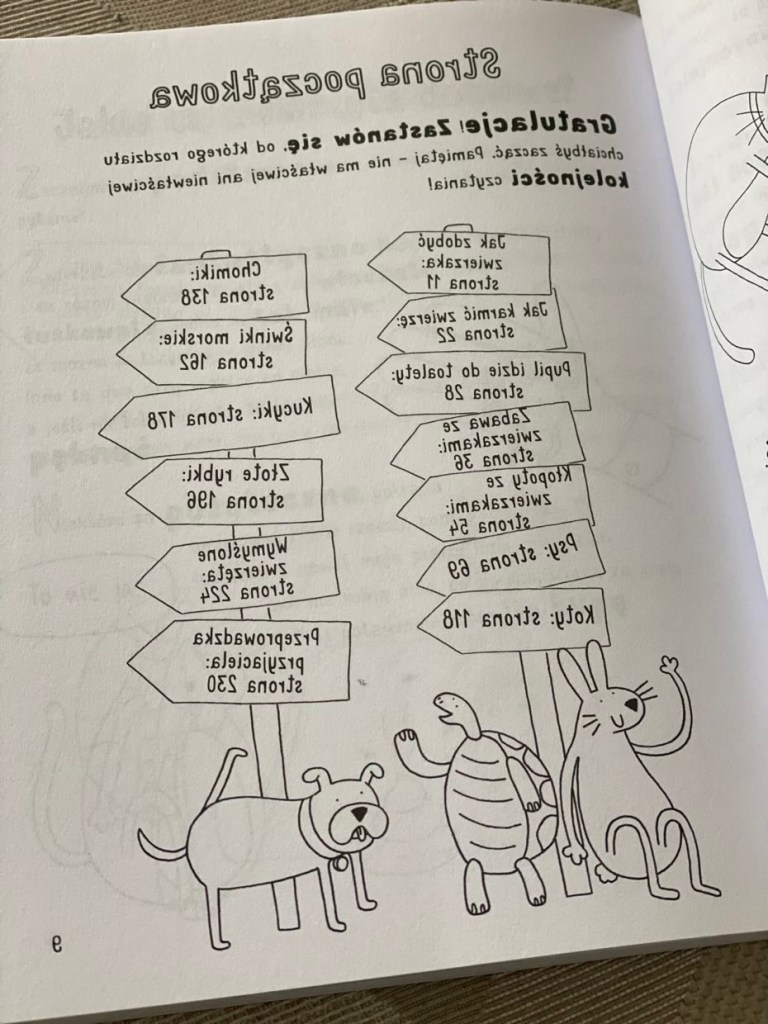 Strona początkowa
Gratulacje! Zastanów się, od którego rozdziału
chciałbyś zacząć. Pamiętaj – nie ma właściwej ani niewłaściwej
kolejności czytania!
Jak zdobyć
zwierzaka:
strona 11
Jak karmić zwierzę:
strona 22
Pupil idzie do toalety:
strona 28
Zabawa ze
zwierzakami:
strona 36
Kłopoty ze
zwierzakami:
strona 54
Psy: strona 69
Koty: strona 118
Chomiki:
strona 138
Świnki morskie:
strona 162
Kucyki: strona 178
Złote rybki:
strona 196
Wymyślone
zwierzęta:
strona 224
Przeprowadzka
przyjaciela:
strona 230
9